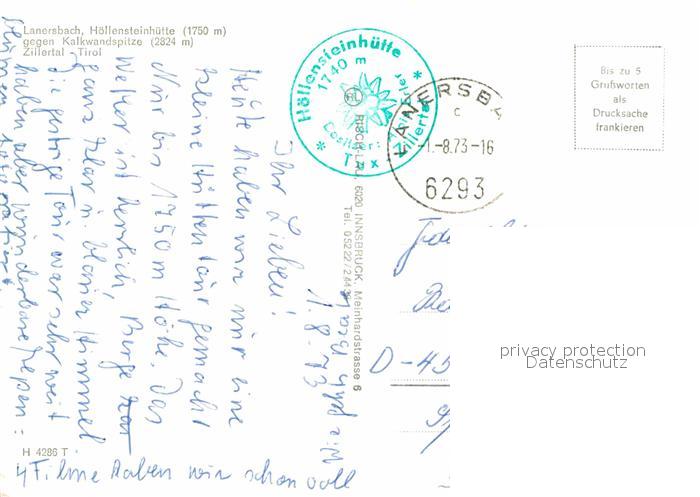 Lanersbach, Höllensteinhütte (1750 m)
gegen Kalkwandspitze (2824 m)
Zillertal - Tirol
Höllensteinhütte
1740 m
Besitzer:
* Tux *
Zillertal
LANERSBA
c
-1.-8.73-16
6293
Bis zu 5
Grußworten
als
Drucksache
frankieren
RISCH-LAU, 6020 INNSBRUCK, Meinhardstrasse 6
Tel. 05222/244
1.8.73
Ihr Lieben!
Heute haben wir nur eine
kleine Hüttentour gemacht
Nur bis 1750 m Höhe. Das
Wetter ist herrlich, Berge
ganz klar u. blauer Himmel
die gestrige Tour war sehr weit
haben aber wunderbare
4 Filme haben wir schon voll
D-45
H 4286 T
privacy protection
Datenschutz